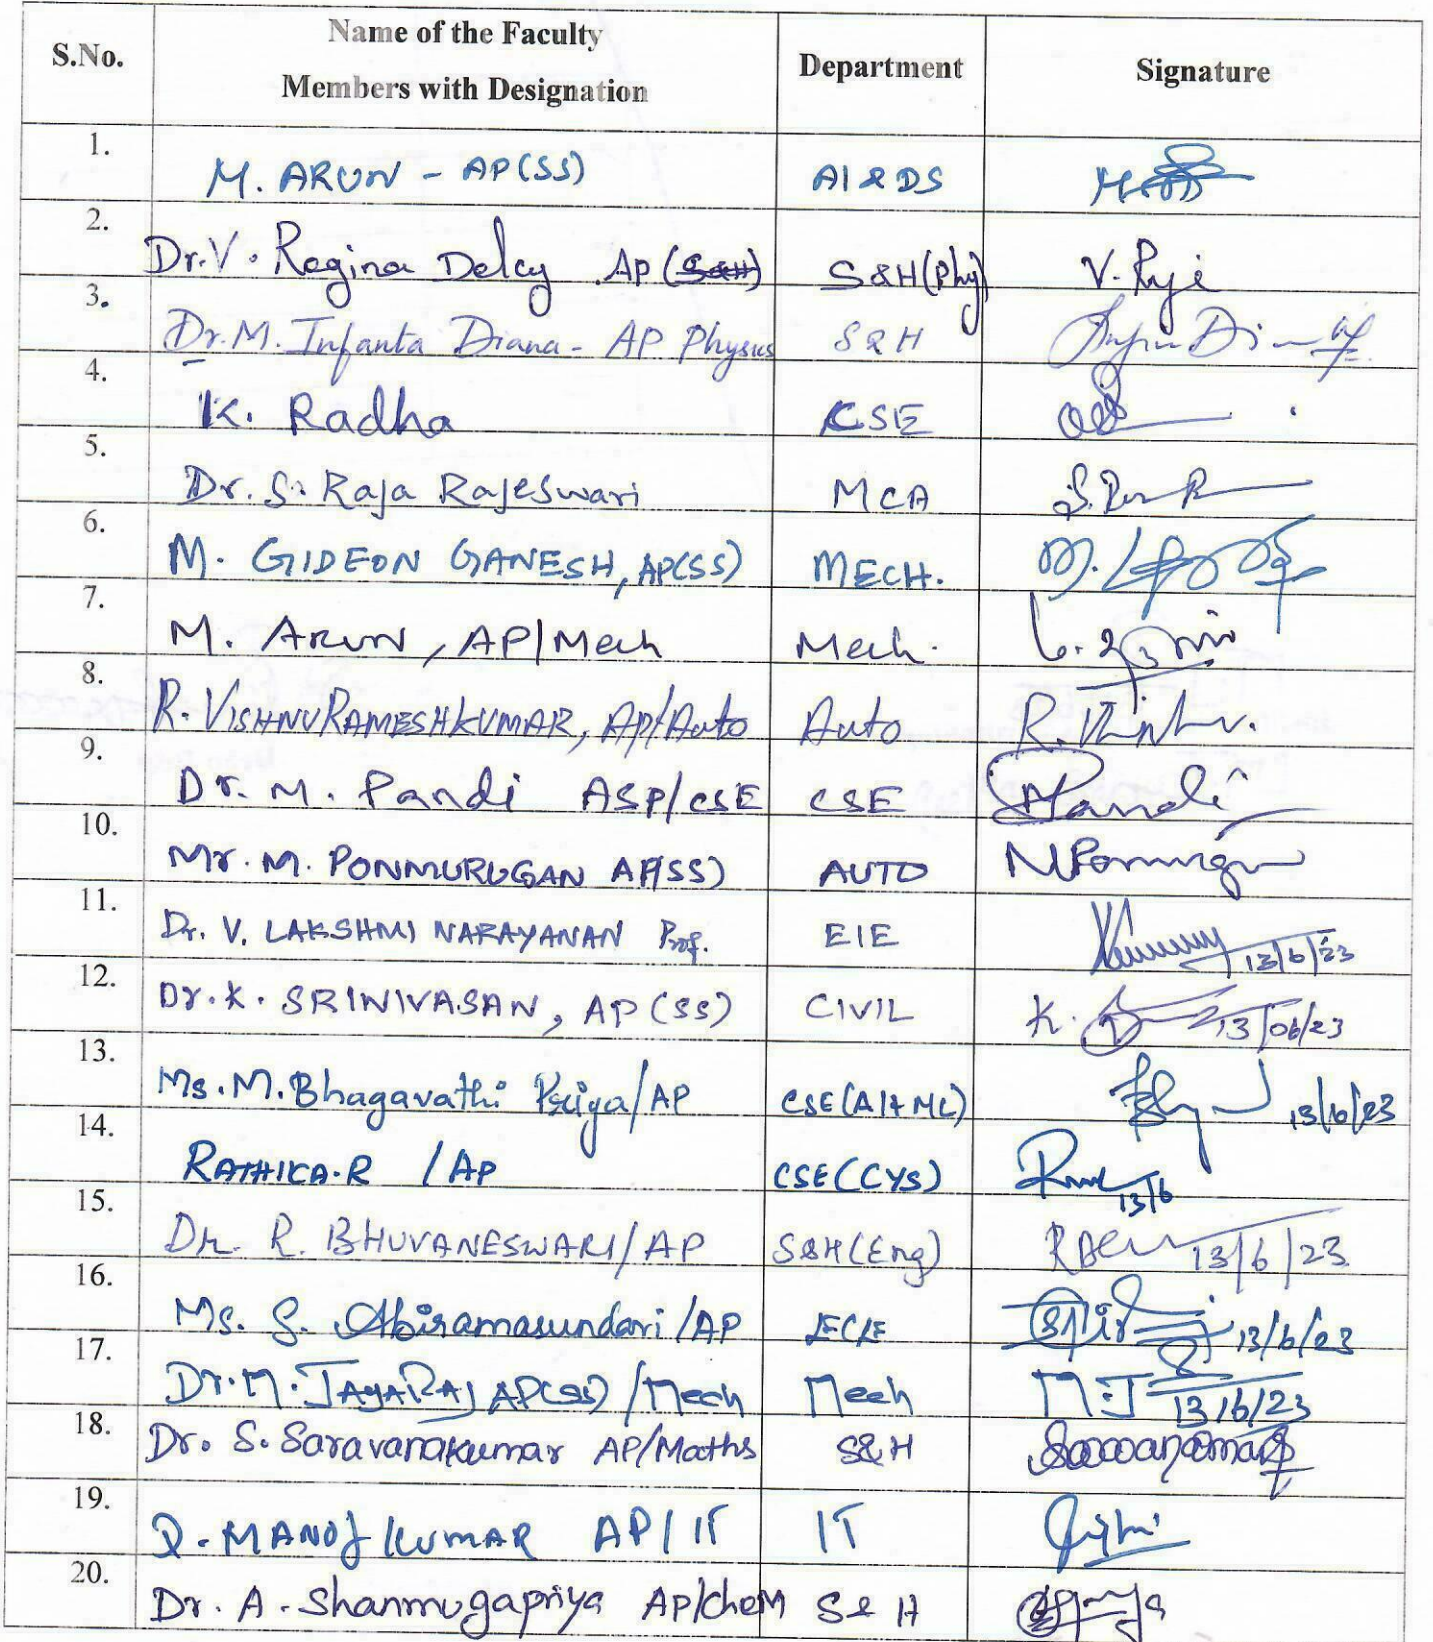 S.No. Name of the Faculty Members with Designation Department Signature
1. M. ARUN - AP(SS) AI & DS
2. Dr.V. Regina Delcy AP (S&H) S&H(Phy) V. Reji
3. Dr.M. Infanta Diana - AP Physics S&H
4. K. Radha CSE
5. Dr. S. Raja Rajeswari MCA
6. M. GIDEON GANESH, AP(SS) MECH.
7. M. Arun, AP/Mech Mech.
8. R. VISHNU RAMESHKUMAR, AP/Auto Auto
9. Dr. M. Pandi ASP/CSE CSE Pandi
10. Mr. M. PONMURUGAN AP(SS) AUTO
11. Dr. V. LAKSHMI NARAYANAN Prof. EIE 13/6/23
12. Dr. K. SRINIVASAN, AP (SS) CIVIL K. 13/06/23
13. Ms. M. Bhagavathi Priya/AP CSE(AI+ML) 13/6/23
14. RATHIKA.R /AP CSE(CYS) 13/6
15. Dr. R. BHUVANESWARI/AP S&H(Eng) 13/6/23
16. Ms. S. Abiramasundari/AP ECE 13/6/23
17. Dr. M. JAYARAJ AP(SS)/Mech Mech M.J 13/6/23
18. Dr. S. Saravanakumar AP/Maths S&H
19. MANOJ KUMAR AP/IT IT
20. Dr. A. Shanmugapriya AP/CheM S&H